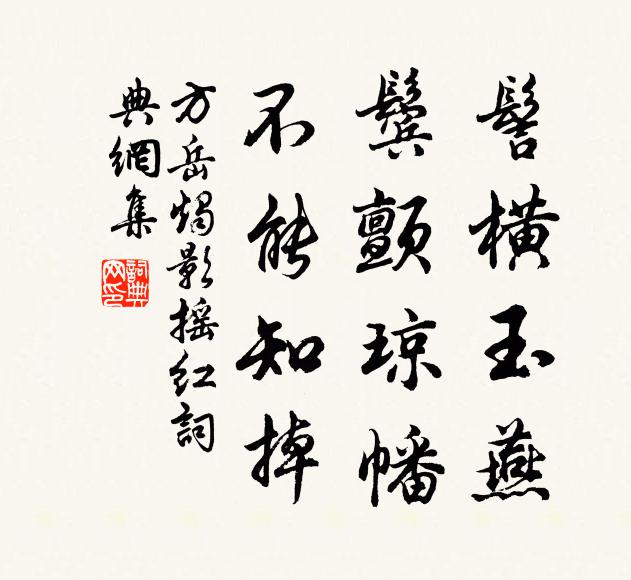 髻橫玉燕
鬓顫琼幡
不能知掉
方岳燭影摇紅詞
典網集
詞典
网印